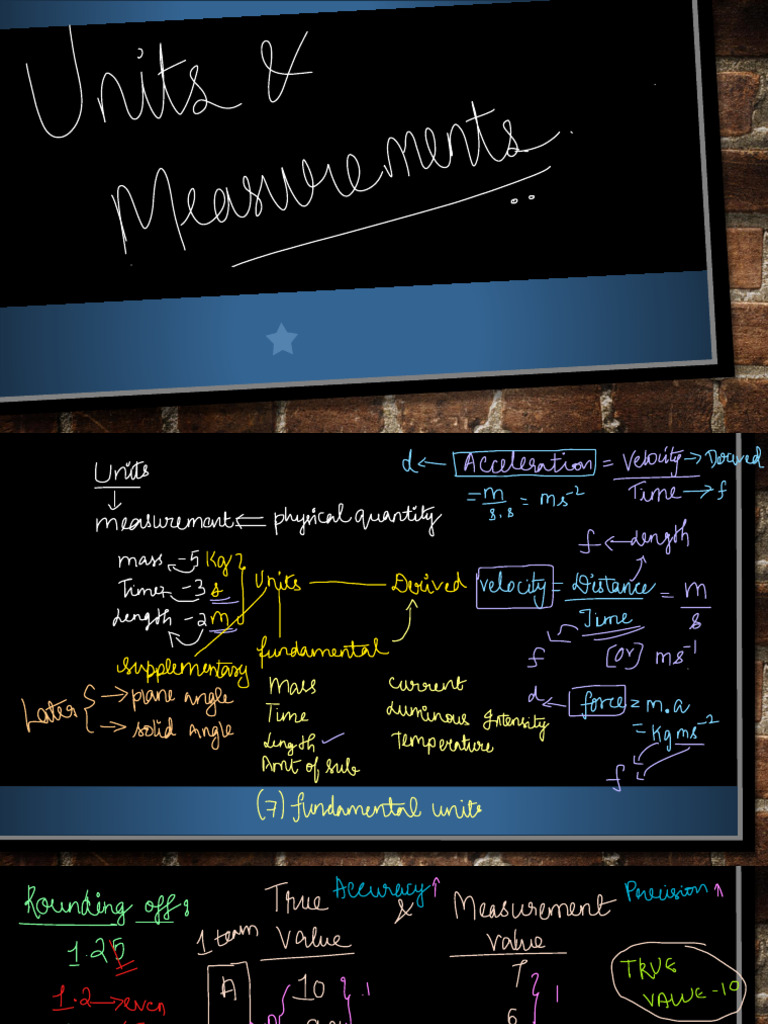 Units &
Measurements.
Units
measurement ⇐ physical quantity
mass - 5 Kg
Time - 3 s
Length - 2 m
Units — Derived
fundamental
supplementary
Later { → plane angle
→ solid Angle
Mass
Time
Length ✓
Amt of sub
current
Luminous Intensity
Temperature
(7) fundamental units
d ← Acceleration = Velocity → Derived
Time → f
= m/s.s = ms⁻²
f ← Length
Velocity = Distance/Time = m/s
f
[or] ms⁻¹
d ← force = m.a
= Kg ms⁻²
f
Rounding off :
1.25
1.2 → even
True Accuracy ↑ & Measurement Precision ↑
1 team value value
A 10 .1 7 1
6
TRUE
VALUE - 10